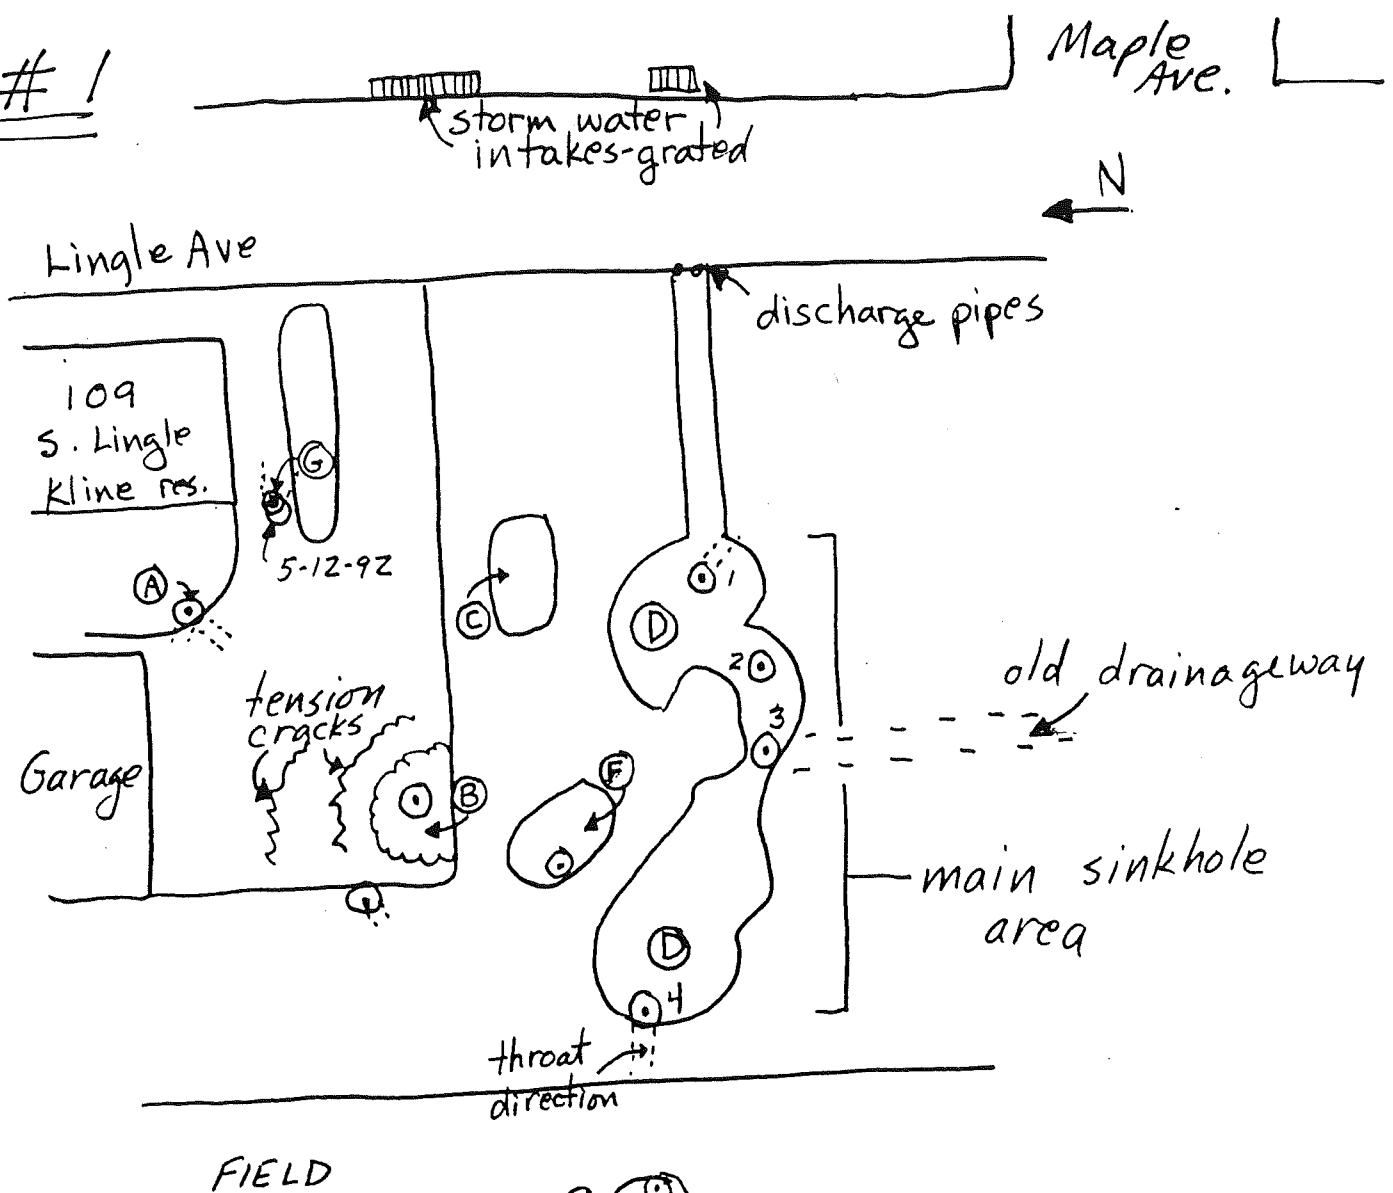 # 1
Maple
Ave.
storm water
intakes-grated
N
Lingle Ave
discharge pipes
109
S. Lingle
Kline res.
G
5-12-92
A
C
D
1
2
3
old drainageway
tension
cracks
Garage
B
F
main sinkhole
area
D
4
throat
direction
FIELD